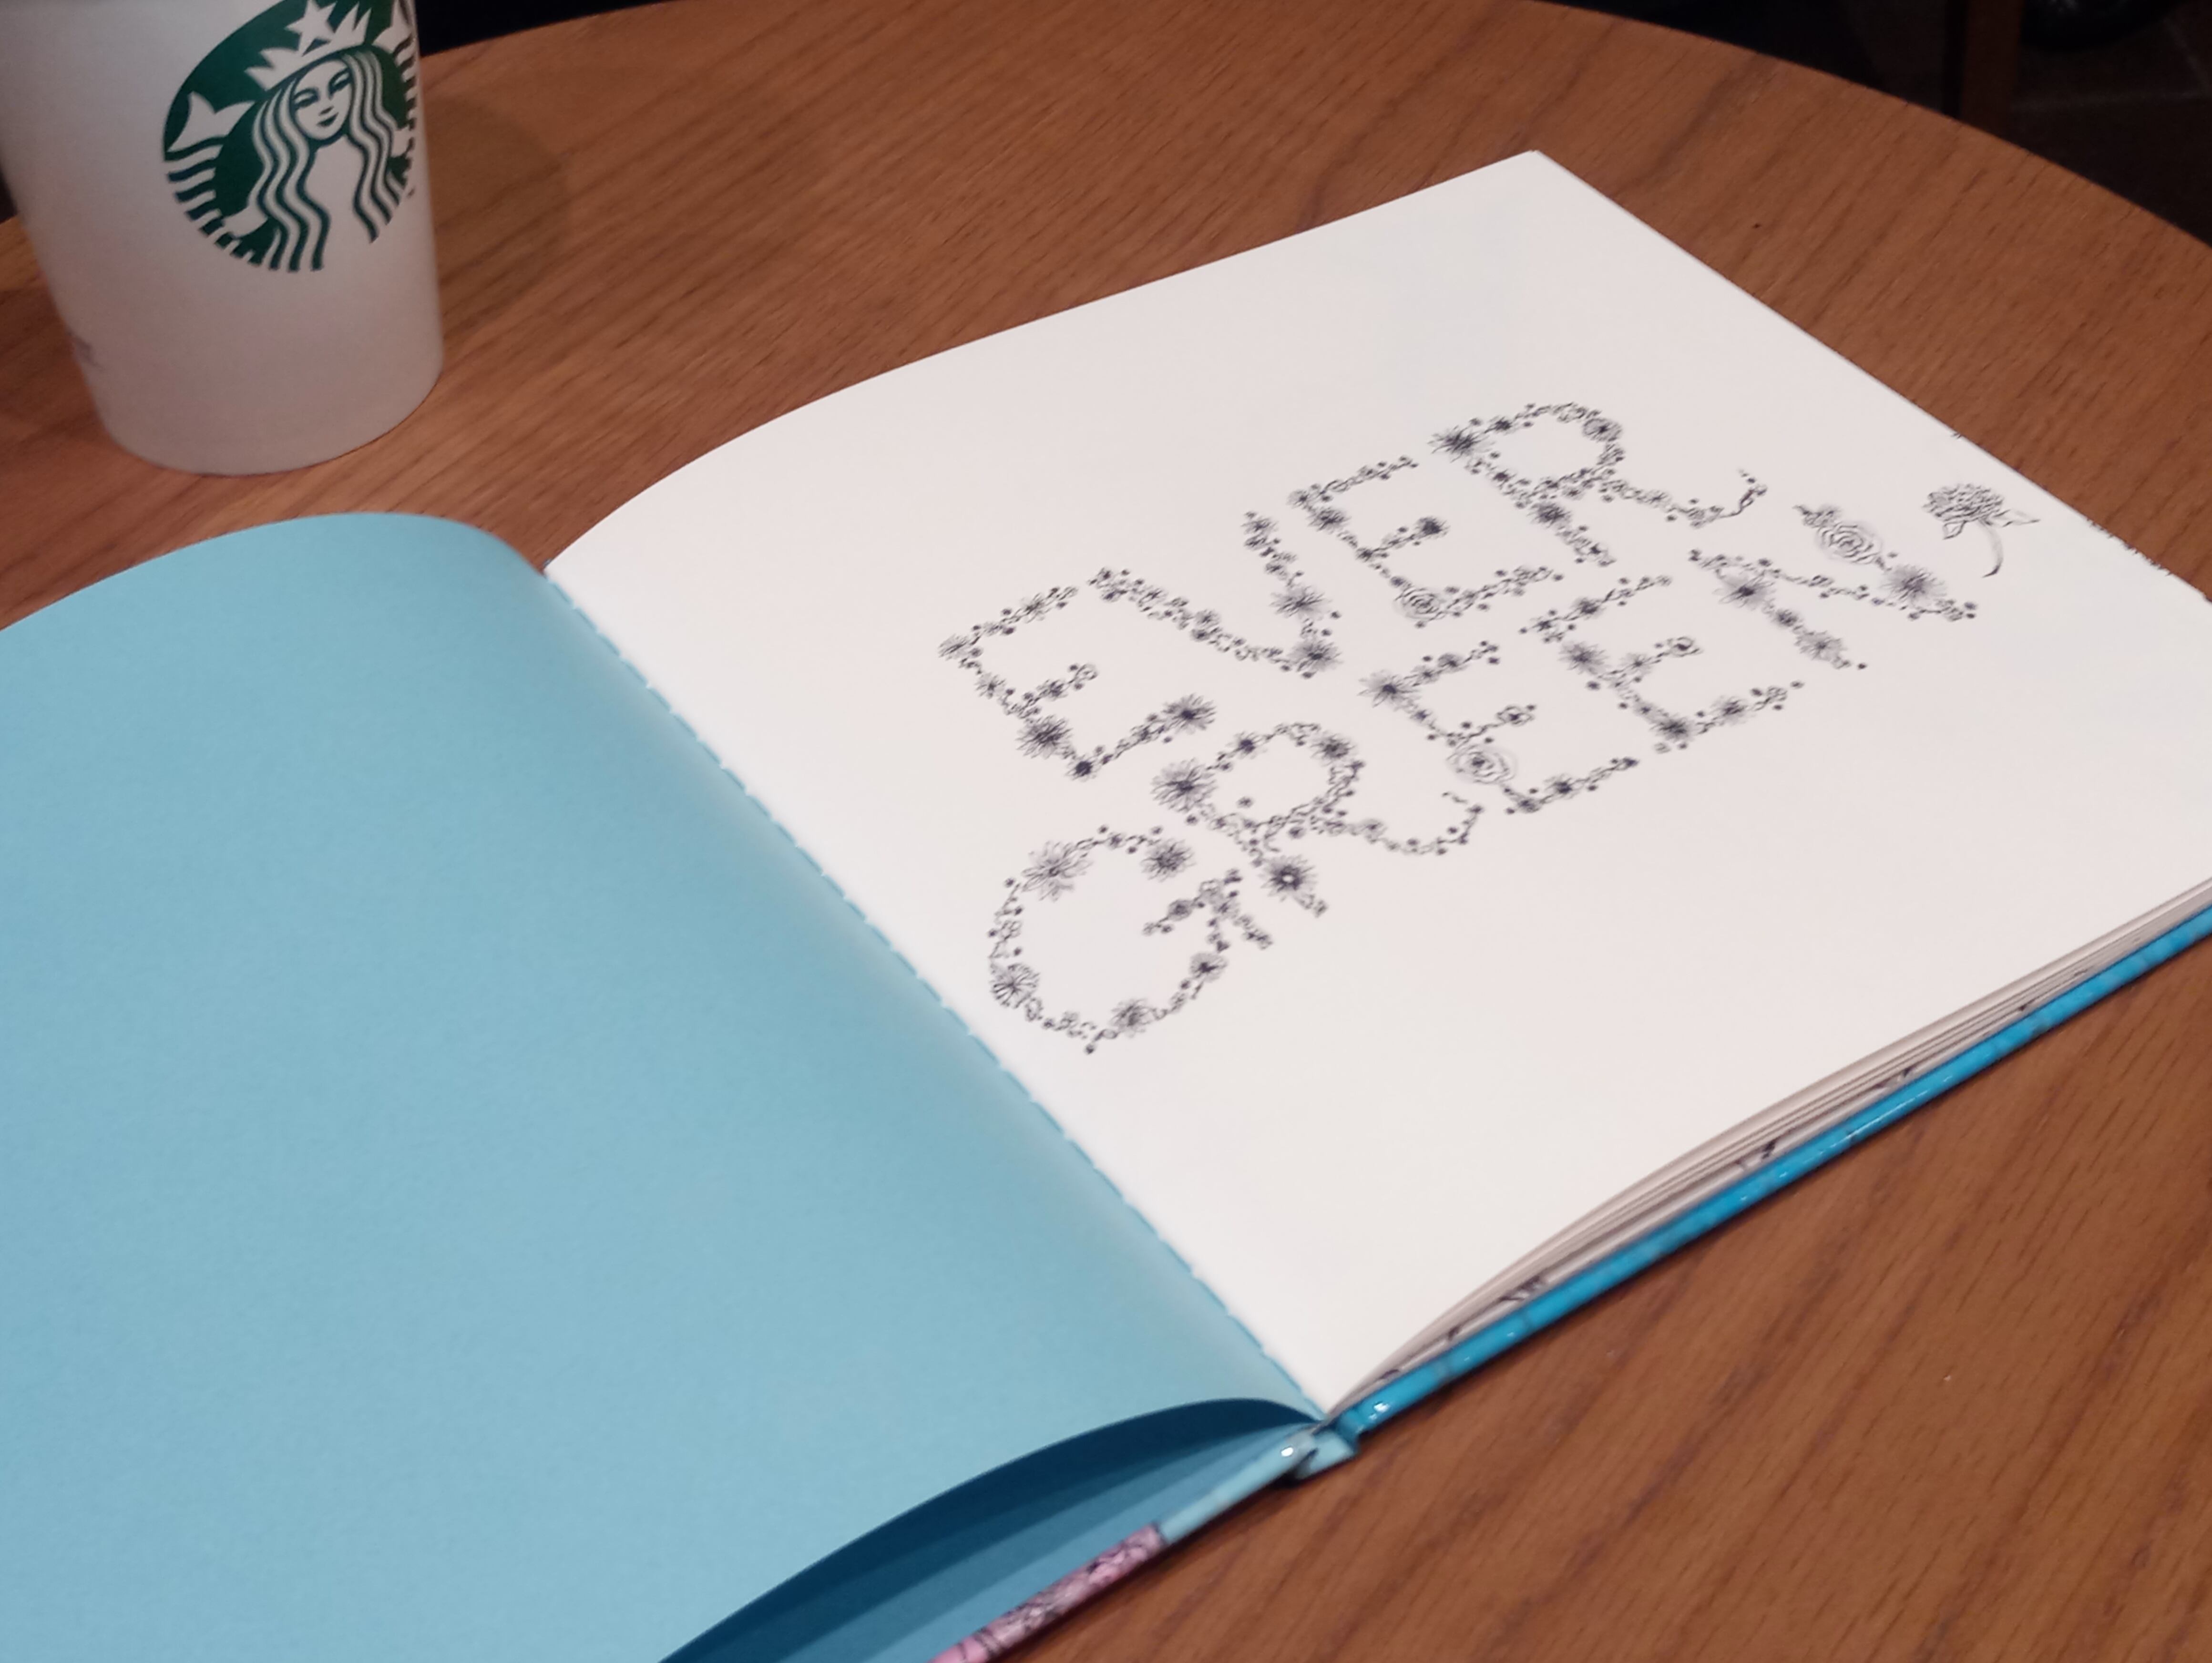 EVER
GREEN